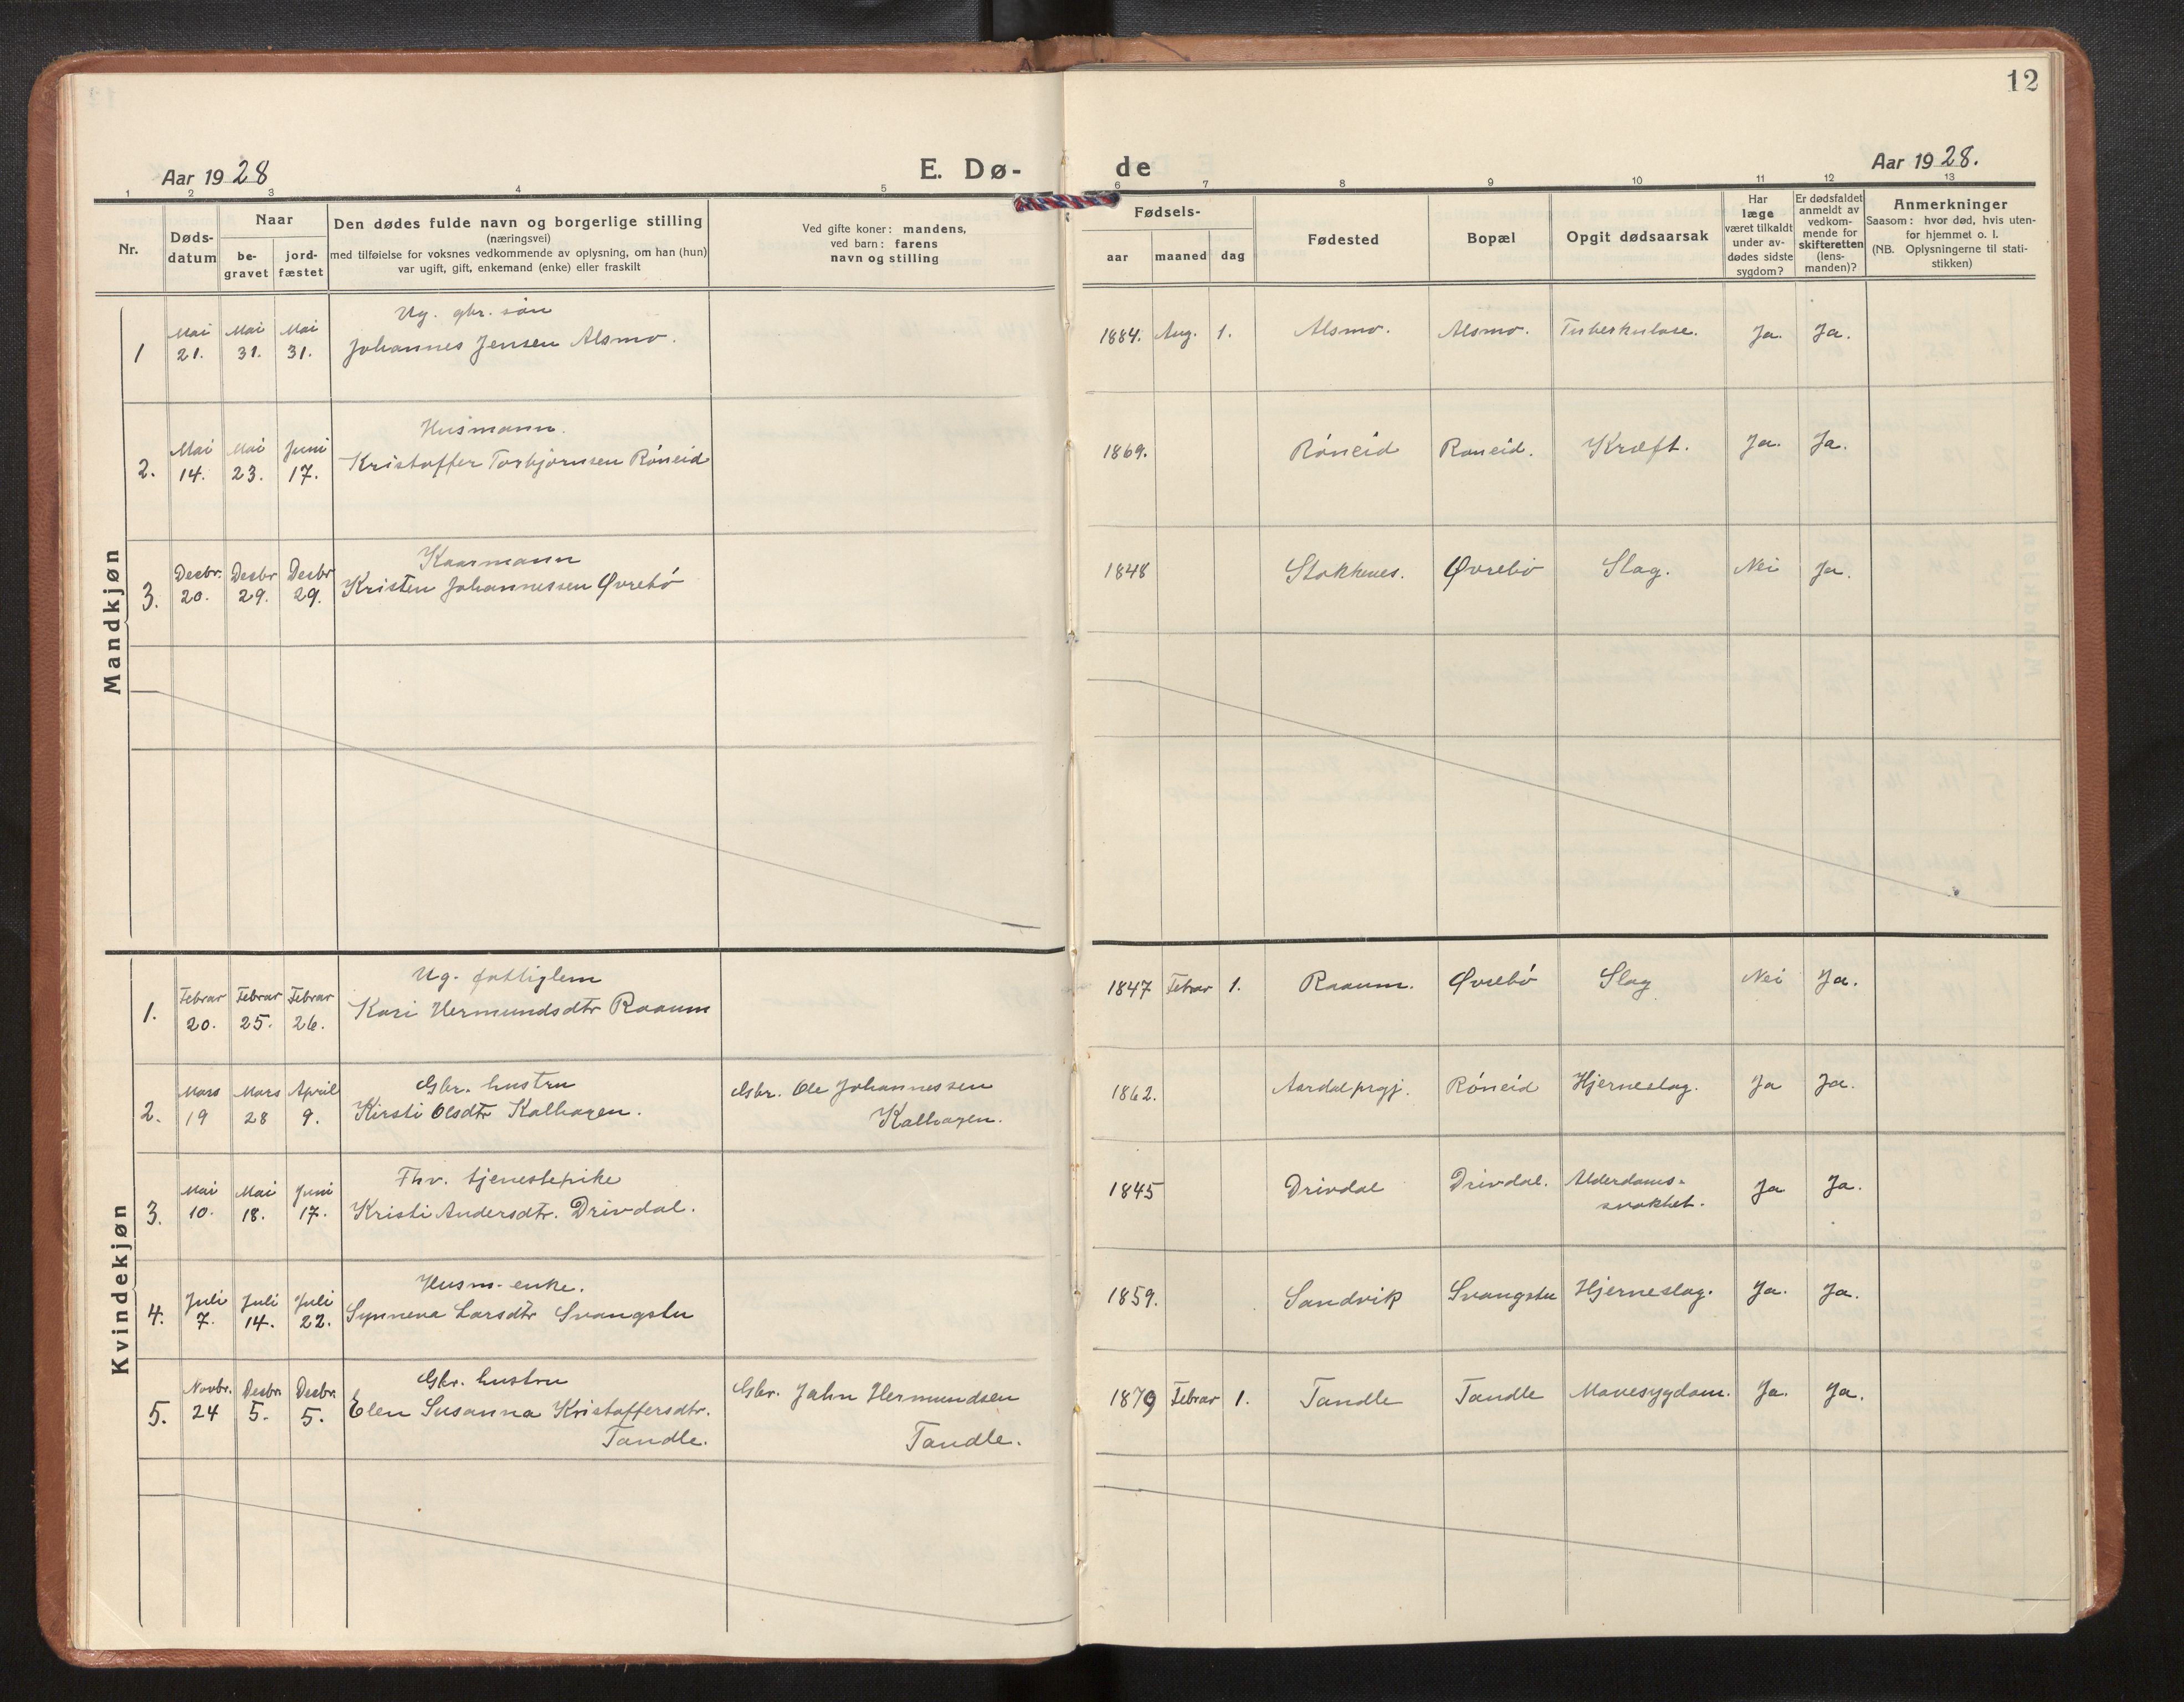 12
Aar 1928
E. Dø-
de
Aar 1928.
1 2 3 4 5 6 7 8 9 10 11 12 13
Nr.
Døds-
datum
Naar
be-
gravet
jord-
fæstet
Den dødes fulde navn og borgerlige stilling
(næringsvei)
med tilføielse for voksnes vedkommende av oplysning, om han (hun)
var ugift, gift, enkemand (enke) eller fraskilt
Ved gifte koner: mandens,
ved barn: farens
navn og stilling
Fødsels-
aar maaned dag
Fødested
Bopæl
Opgit dødsaarsak
Har
læge
været tilkaldt
under av-
dødes sidste
sygdom?
Er dødsfaldet
anmeldt av
vedkom-
mende for
skifteretten
(lens-
manden)?
Anmerkninger
Saasom: hvor død, hvis uten-
for hjemmet o. l.
(NB. Oplysningerne til stati-
stikken)
Mandkjøn
Ug. gbr. søn
Mai Mai Mai
1 21. 31. 31. Johannes Jensen Alsmo. 1884. Aug. 1. Alsmo. Alsmo. Tuberkulose. Ja. Ja.
Husmann.
Mai Mai Juni
2. 14. 23. 17. Kristoffer Torbjørnsen Røneid 1869. Røneid Røneid. Kræft. Ja. Ja.
Kaarmann
Desbr. Desbr Desbr
3. 20. 29. 29. Kristen Johannessen Øvrebø 1848 Stokkenes. Øvrebø Slag. Nei Ja.
Kvindekjøn
Ug. fattiglem
Febrar Febrar Febrar
1. 20. 25. 26. Kari Hermundsdtr Raaum 1847 Febrar 1. Raaum. Øvrebø Slag Nei Ja.
Gbr. hustru
Mars Mars April
2. 19 28 9. Kirsti Olsdtr Kalhagen. Gbr. Ole Johannessen 1862. Aardal prgj. Røneid Hjerneslag. Ja Ja.
Kalhagen.
Fhv. tjenestepike
Mai Mai Juni
3. 10. 18. 17. Kristi Andersdtr. Drivdal. 1845 Drivdal Drivdal. Alderdoms- Ja Ja.
svakhet.
Husm. enke.
Juli Juli Juli
4. 7. 14. 22. Synneva Larsdtr Svangstu 1859. Sandvik Svangstu Hjerneslag. Ja. Ja.
Gbr. hustru
Novbr. Desbr. Desbr.
5. 24 5. 5. Elen Susanna Kristoffersdtr. Gbr. Jahn Hermundsen 1879 Febrar 1. Tandle Tandle Mavesygdom. Ja. Ja.
Tandle. Tandle.